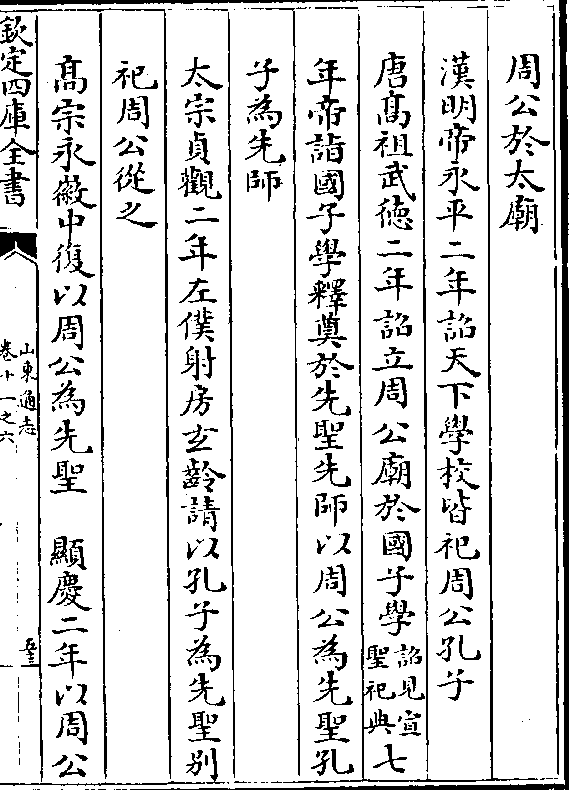 周公於太廟
漢明帝永平二年詔天下學校皆祀周公孔子
唐髙祖武徳二年詔立周公廟於國子學詔見宣聖祀典七
年帝詣國子學釋奠於先聖先師以周公為先聖孔
子為先師
太宗貞觀二年左僕射房玄齡請以孔子為先聖别
祀周公從之
髙宗永徽中復以周公為先聖 顯慶二年以周公
欽定四庫全書
山東通志
卷十一之六